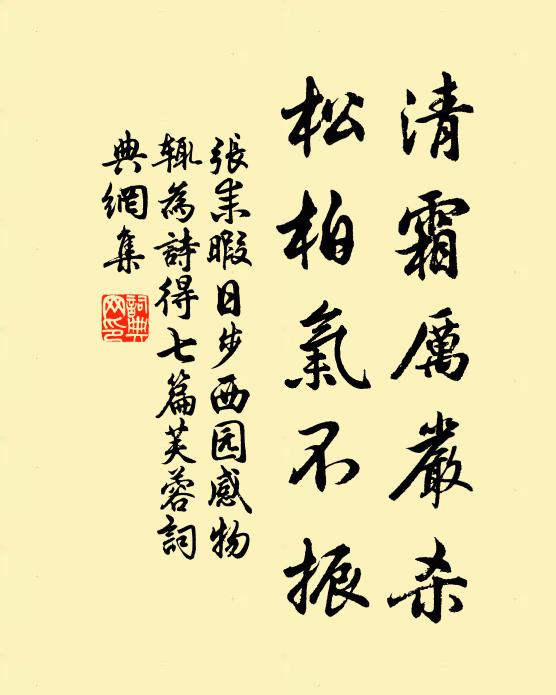 清霜厲嚴杀
松柏氣不振
張耒暇日步西园感物
辄為詩得七篇芙蓉詞
典網集
詞典网印